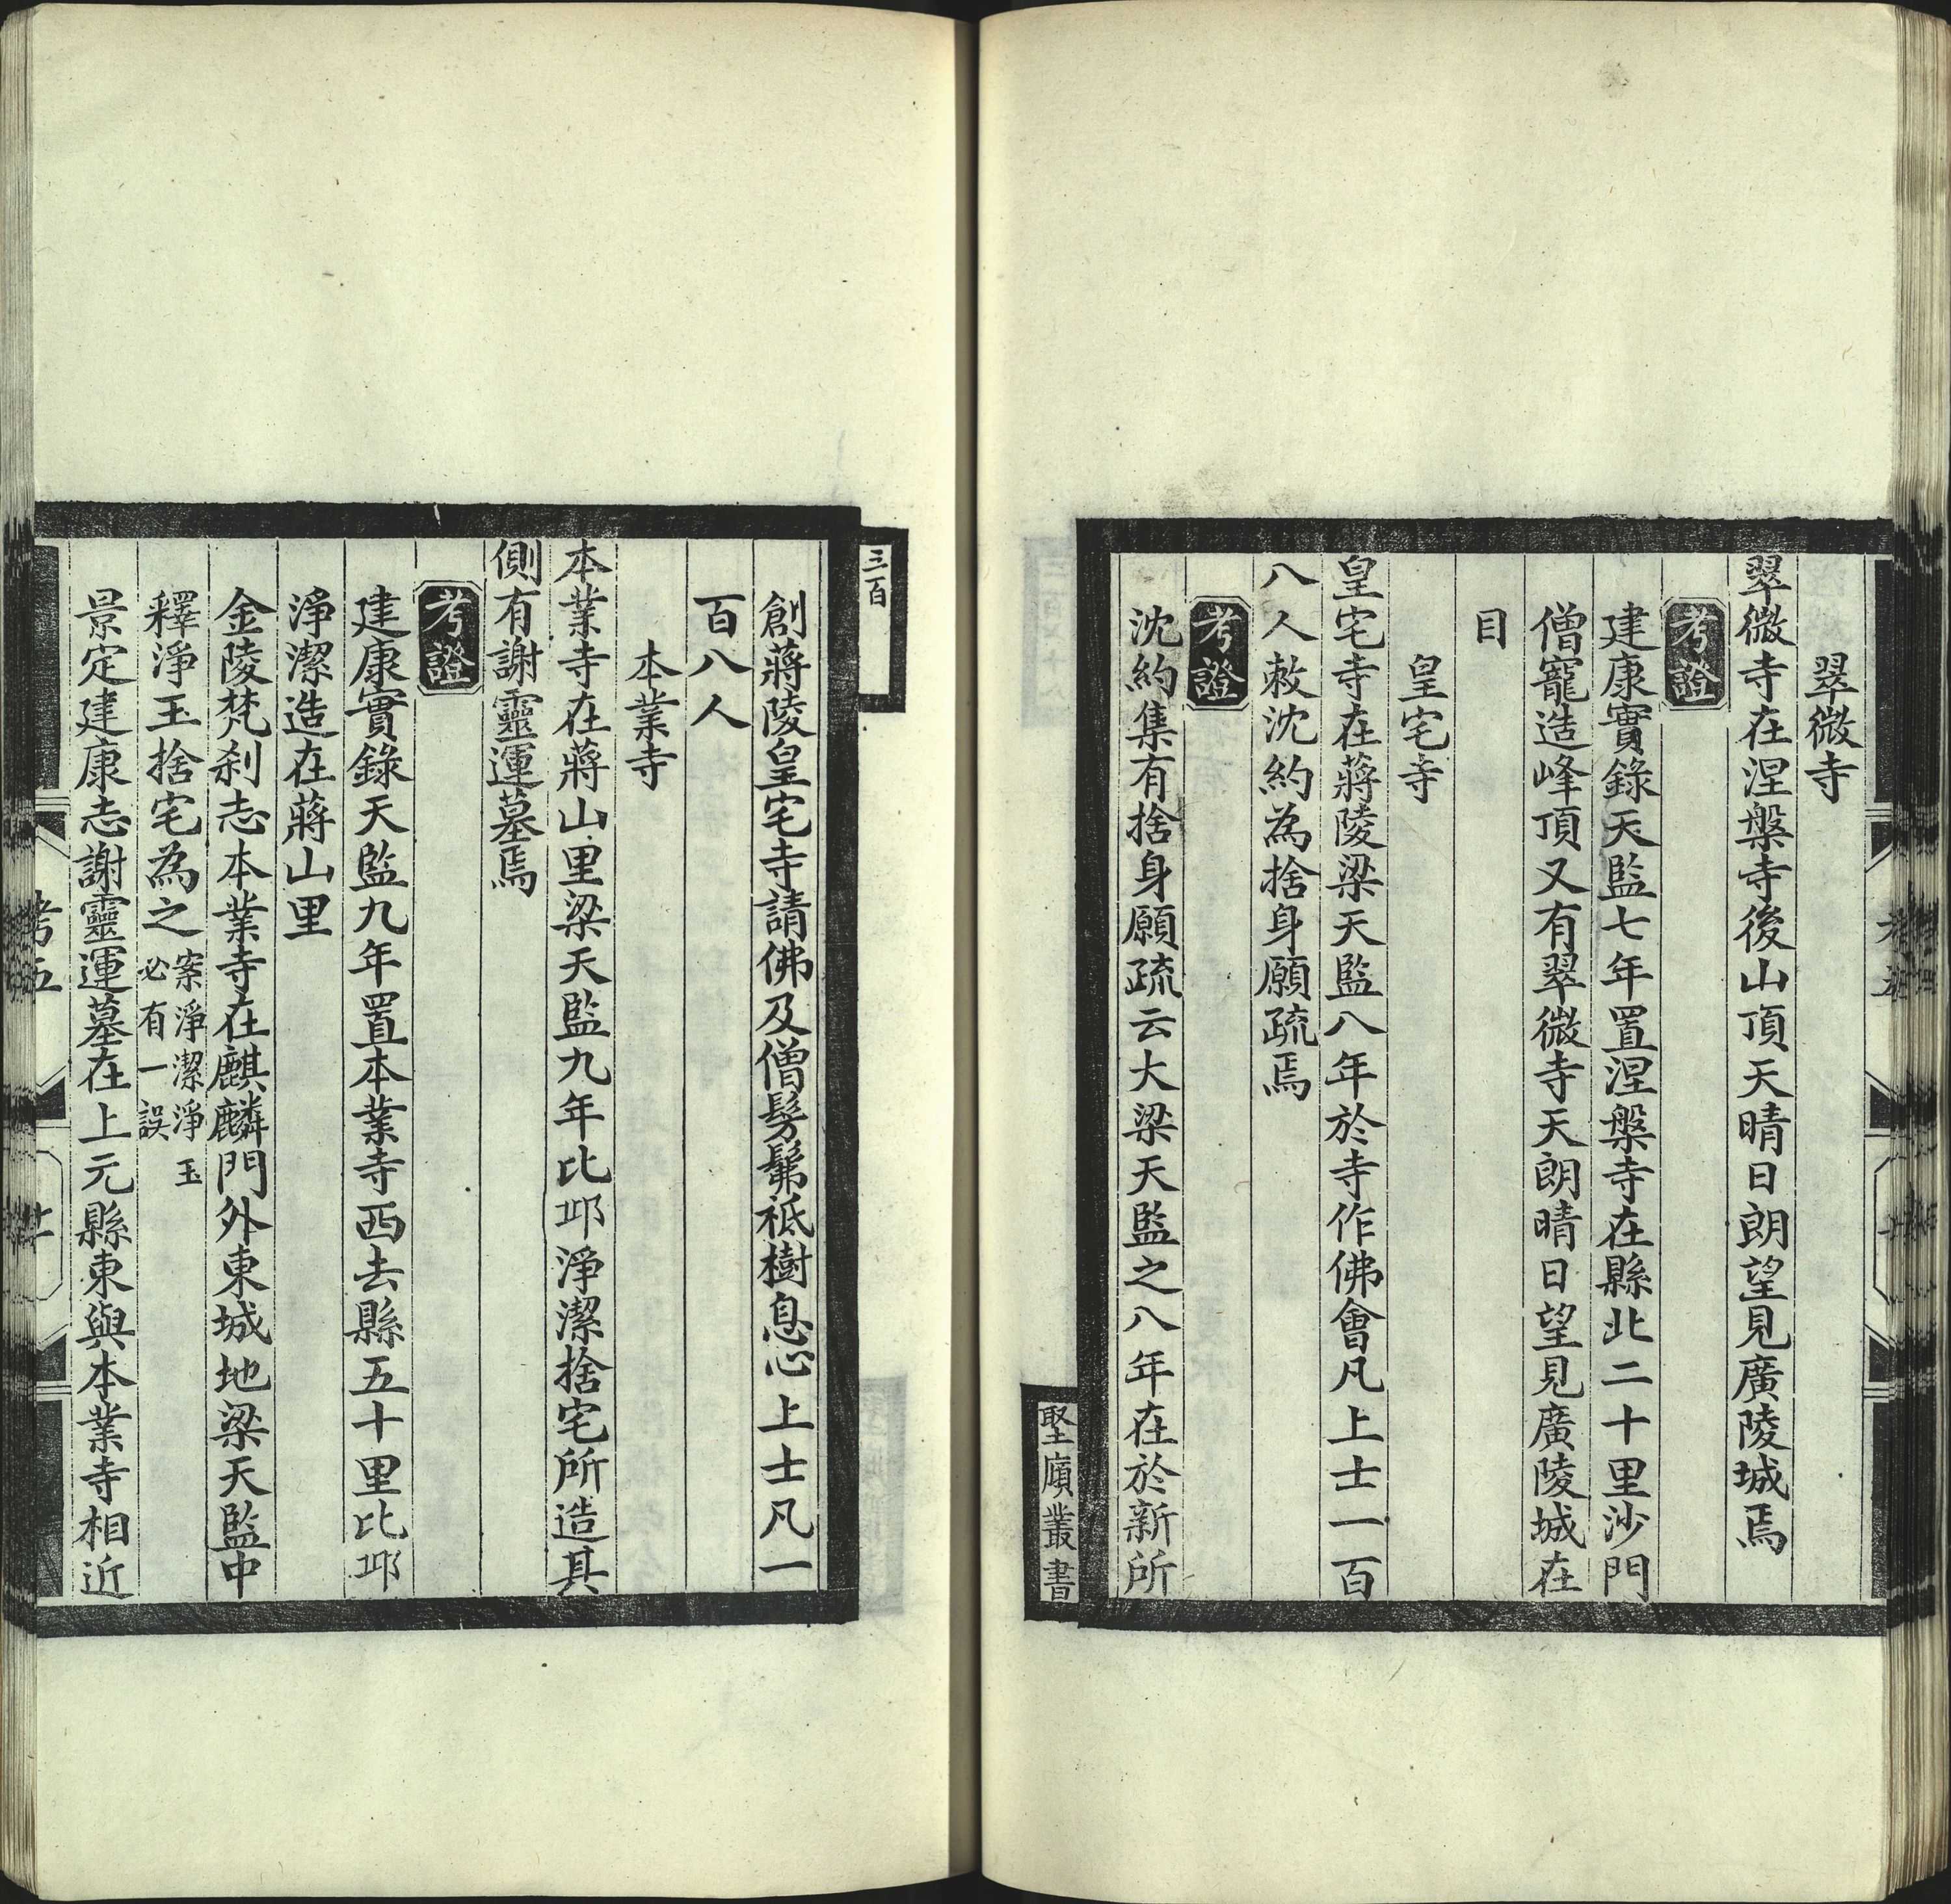 翠微寺
翠微寺在涅槃寺後山頂天晴日朗望見廣陵城焉
考證
建康實錄天監七年置涅槃寺在縣北二十里沙門
僧寵造峰頂又有翠微寺天朗晴日望見廣陵城在
目
皇宅寺
皇宅寺在蔣陵梁天監八年於寺作佛會凡上士一百
八人敕沈約為捨身願疏焉
考證
沈約集有捨身願疏云大梁天監之八年在於新所
堅廎叢書
三百
創蔣陵皇宅寺請佛及僧髣髴祇樹息心上士凡一
百八人
本業寺
本業寺在蔣山里梁天監九年比邱淨潔捨宅所造其
側有謝靈運墓焉
考證
建康實錄天監九年置本業寺西去縣五十里比邱
淨潔造在蔣山里
金陵梵刹志本業寺在麒麟門外東城地梁天監中
釋淨玉捨宅為之案淨潔淨玉
必有一誤
景定建康志謝靈運墓在上元縣東與本業寺相近
考五